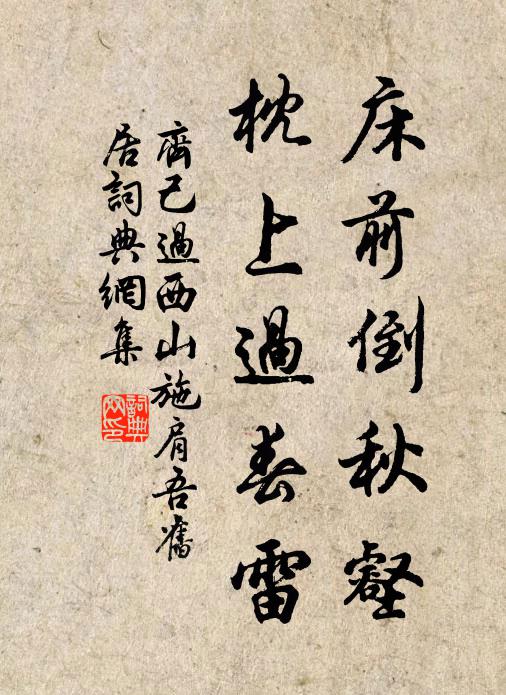 床前倒秋壑
枕上過春雷
齊己過西山施肩吾舊
居詞典網集
詞典